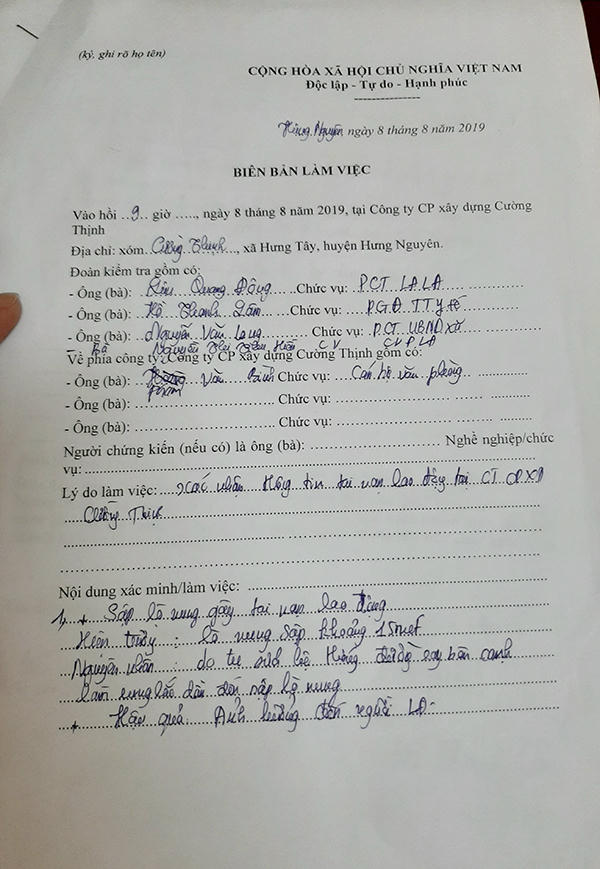 (ký, ghi rõ họ tên)
CỘNG HÒA XÃ HỘI CHỦ NGHĨA VIỆT NAM
Độc lập - Tự do - Hạnh phúc
Hưng Nguyên ngày 8 tháng 8 năm 2019
BIÊN BẢN LÀM VIỆC
Vào hồi ..9.. giờ ....., ngày 8 tháng 8 năm 2019, tại Công ty CP xây dựng Cường
Thịnh
Địa chỉ: xóm Cường Thịnh, xã Hưng Tây, huyện Hưng Nguyên.
Đoàn kiểm tra gồm có:
- Ông (bà): Quang Đông Chức vụ: PCT
- Ông (bà): Hồ Thanh Chức vụ: PGĐ TTYtế
- Ông (bà): Nguyễn Văn Long Chức vụ: PCT UBND xã
Bà Nguyễn Thị Hiền CV
Về phía công ty: Công ty CP xây dựng Cường Thịnh gồm có:
- Ông (bà): Phạm Văn Bình Chức vụ: Cán bộ văn phòng
- Ông (bà): Chức vụ :
- Ông (bà): Chức vụ :
Người chứng kiến (nếu có) là ông (bà): Nghề nghiệp/chức
vụ:
Lý do làm việc: Xác nhận thông tin tai nạn lao động tại CT CPXD
Cường Thịnh
Nội dung xác minh/làm việc:
1, + Sập lò nung gây tai nạn lao động
Hiện trường : lò nung sập khoảng 15 mét
Nguyên nhân : do hệ thống bên cạnh
làm dẫn đến sập lò nung
+ Hậu quả Ảnh hưởng đến người LĐ